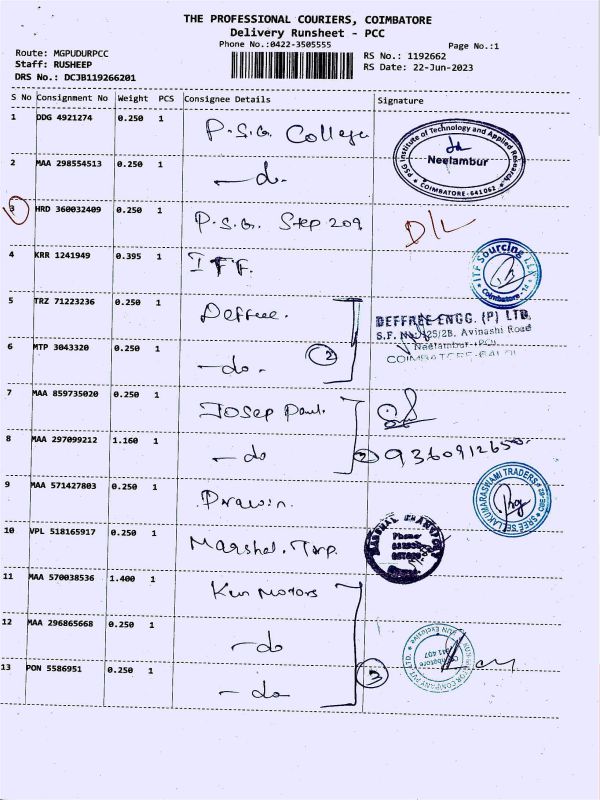 THE PROFESSIONAL COURIERS, COIMBATORE
Delivery Runsheet - PCC
Phone No.:0422-3505555
Page No.:1
Route: MGPUDURPCC
RS No.: 1192662
Staff: RUSHEEP
RS Date: 22-Jun-2023
DRS No.: DCJB119266201
S No Consignment No Weight PCS Consignee Details Signature
1 DDG 4921274 0.250 1 P.S.G. College
PSG Institute of Technology and Applied Research
Neelambur
COIMBATORE-641062
2 MAA 298554513 0.250 1 -do-
3 HRD 360032409 0.250 1 P.S.G. Step 209 D/L
4 KRR 1241949 0.395 1 IFF.
ITF Sourcing LLP
Coimbatore - 14
5 TRZ 71223236 0.250 1 Deffree.
DEFFREE ENGG. (P) LTD.
S.F. No. 325/2B, Avinashi Road
Neelambur
6 MTP 3043320 0.250 1 -do- 2
7 MAA 859735020 0.250 1 Josep Paul.
8 MAA 297099212 1.160 1 -do 2
9 MAA 571427803 0.250 1 Prawin.
SREE SELLAKUMARASWAMI TRADERS
10 VPL 518165917 0.250 1 Marshal. Tarp.
MARSHAL
Phone
11 MAA 570038536 1.400 1 Kun Motors
12 MAA 296865668 0.250 1 -do
KUN MOTOR COMPANY PVT. LTD.
KUN Exclusive
Coimbatore
13 PON 5586951 0.250 1 -do 3